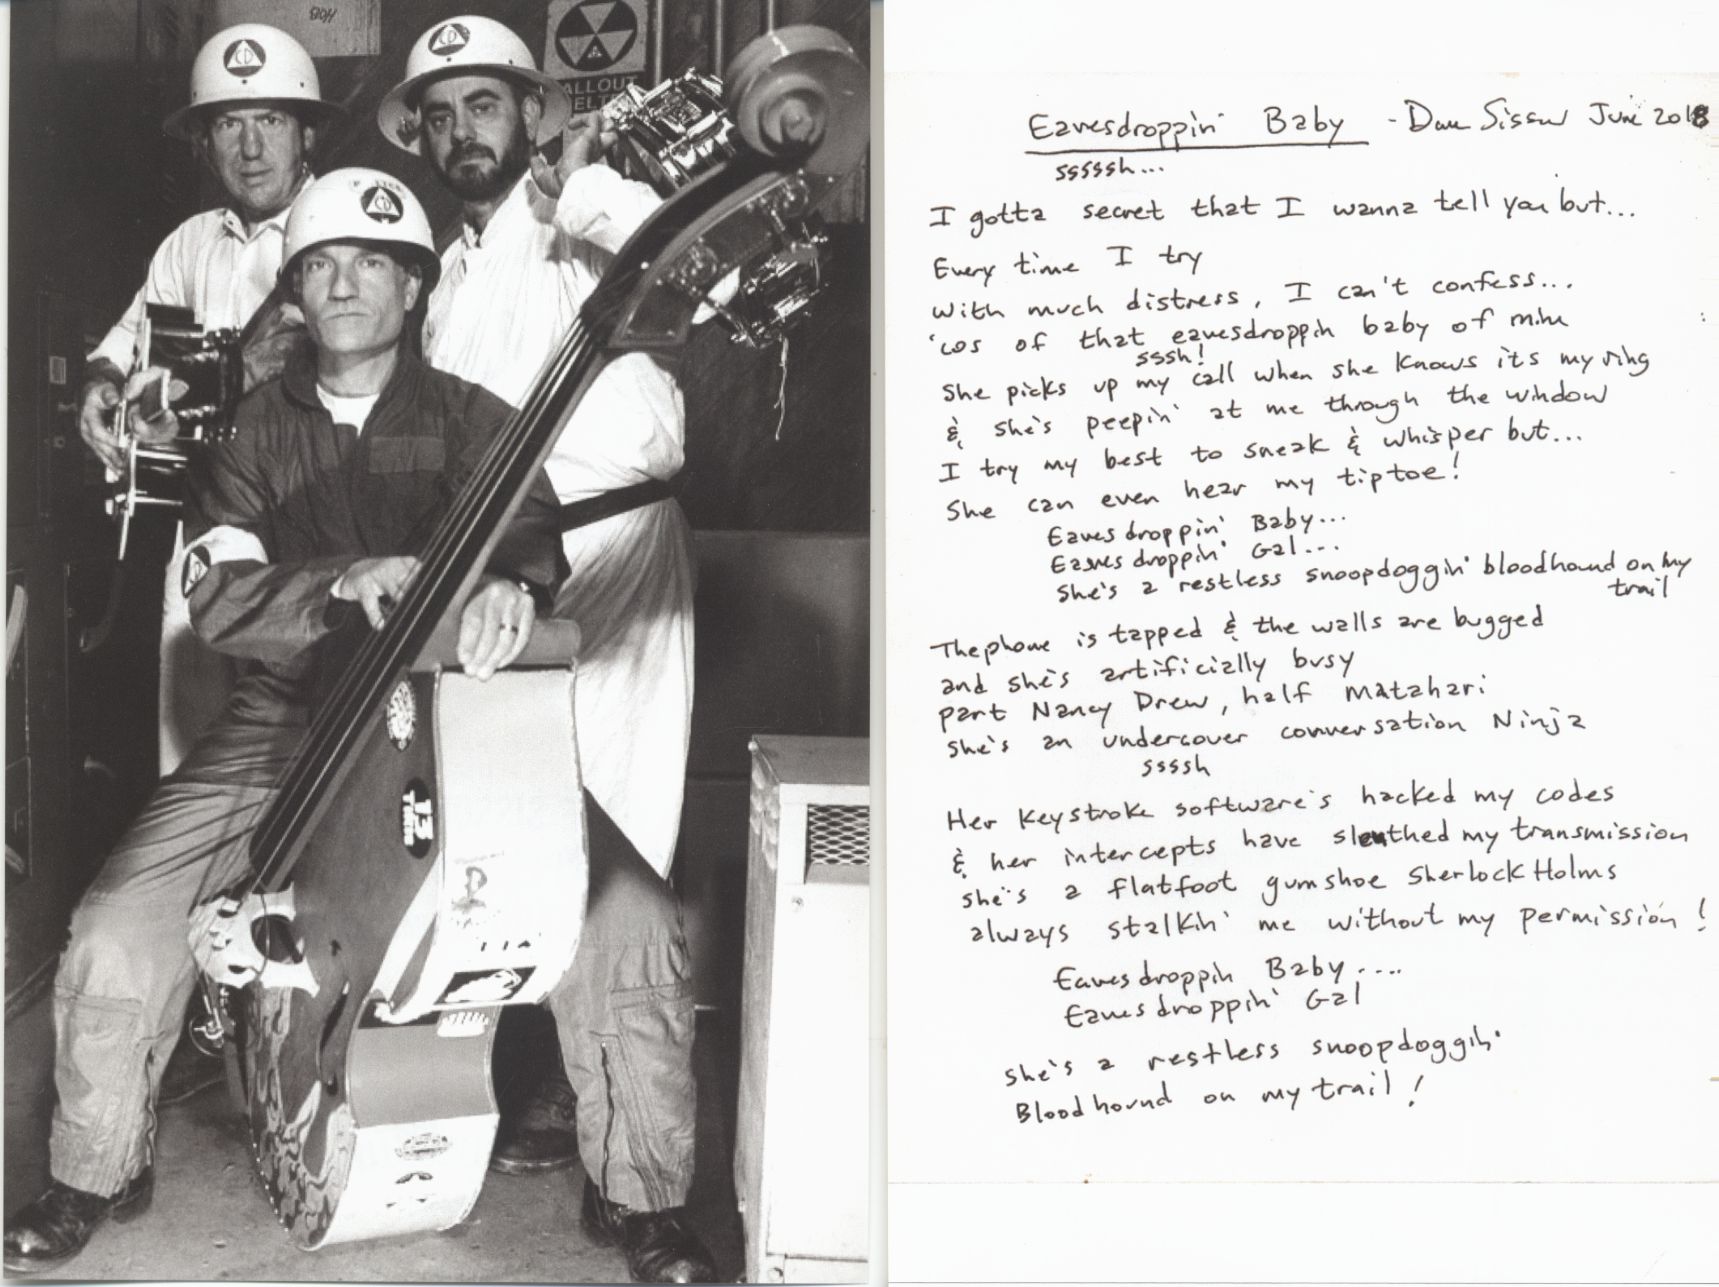 CD
CD
CD
FALLOUT
SHELTER
13
Eavesdroppin' Baby - Dave Sisson June 2018
sssssh...
I gotta secret that I wanna tell you but...
Every time I try
with much distress, I can't confess...
'cos of that eavesdroppin baby of mine
sssh!
She picks up my call when she knows its my ring
& she's peepin' at me through the window
I try my best to sneak & whisper but...
She can even hear my tiptoe!
Eavesdroppin' Baby...
Eavesdroppin' Gal...
She's a restless snoopdoggin' bloodhound on my
trail
The phone is tapped & the walls are bugged
and she's artificially busy
part Nancy Drew, half Matahari
she's an undercover conversation Ninja
ssssh
Her Keystroke software's hacked my codes
& her intercepts have sleuthed my transmission
she's a flatfoot gumshoe Sherlock Holms
always stalkin' me without my permission!
Eavesdroppin Baby....
Eavesdroppin' Gal
She's a restless snoopdoggin'
Bloodhound on my trail!